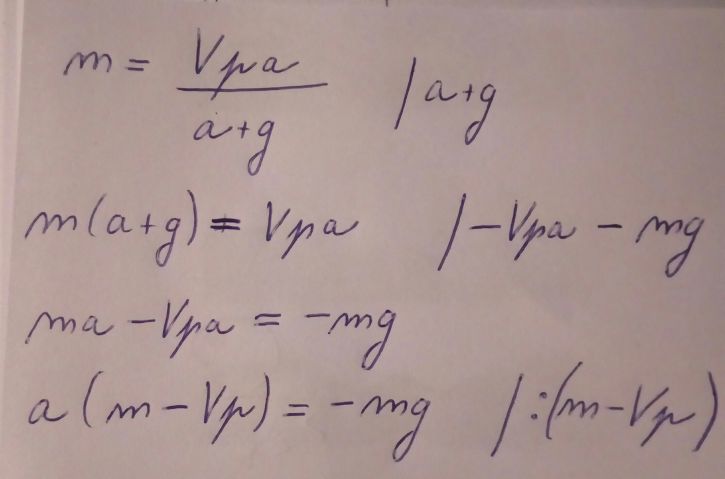 m = Vpa / a+g | a+g
m(a+g) = Vpa | -Vpa - mg
ma - Vpa = -mg
a(m - Vp) = -mg | :(m-Vp)